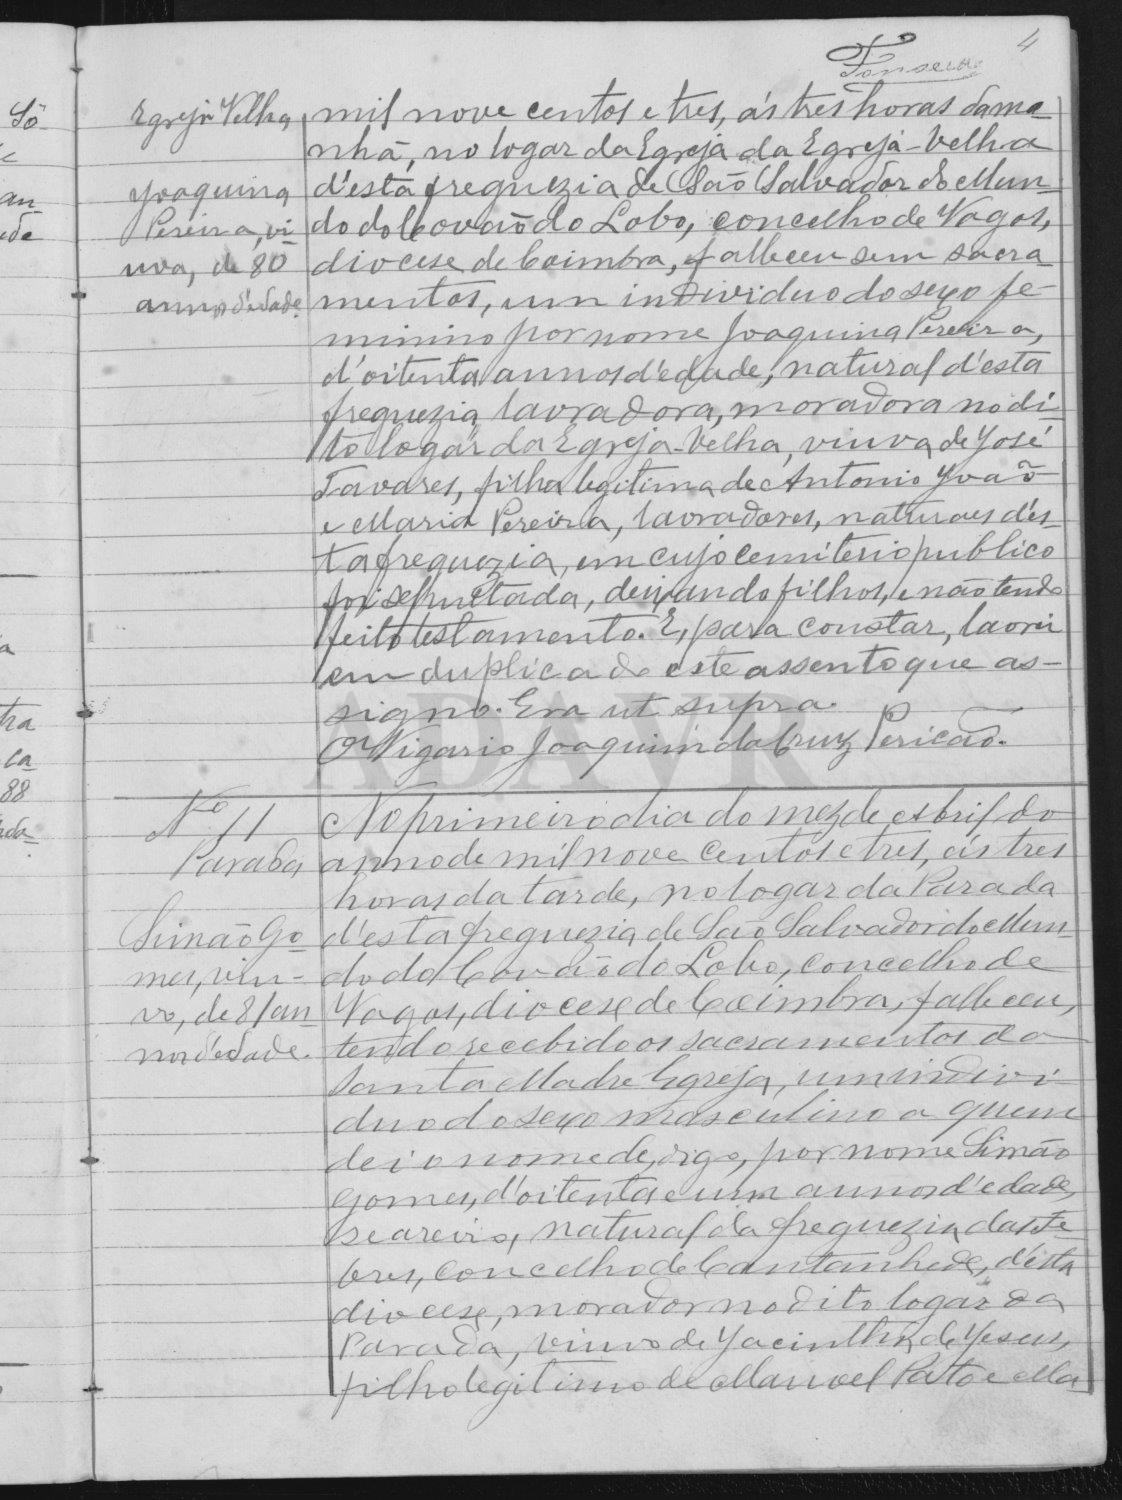 4
Fonseca
Egreja Velha
Joaquina
Pereira, vi-
uva, de 80
annos d'edade.
mil nove centos e tres, ás tres horas da ma-
nhã, no logar da Egreja da Egreja-Velha
d'esta freguezia de São Salvador do Mun-
do do Covão do Lobo, concelho de Vagos,
diocese de Coimbra, falleceu sem sacra-
mentos, um individuo do sexo fe-
minino por nome Joaquina Pereira,
d'oitenta annos d'edade, natural d'esta
freguezia, lavradora, moradora no di-
to logar da Egreja-Velha, viuva de José
Tavares, filha legitima de Antonio João
e Maria Pereira, lavradores, naturaes d'es-
ta freguezia, em cujo cemiterio publico
foi sepultada, deixando filhos, e não tendo
feito testamento. E, para constar, lavrei
em duplicado este assento que as-
signo. Era ut supra.
O Vigario Joaquim da Cruz Pericão.
Nº 11
Parada
Simão Go-
mes, viu-
vo, de 81 an-
nos d'edade.
No primeiro dia do mez de Abril do
anno de mil nove centos e tres, ás tres
horas da tarde, no logar da Parada
d'esta freguezia de São Salvador do Mun-
do do Covão do Lobo, concelho de
Vagos, diocese de Coimbra, falleceu,
tendo recebido os sacramentos da
Santa Madre Egreja, um indivi-
duo do sexo masculino a quem
dei o nome de, digo, por nome Simão
Gomes, d'oitenta e um annos d'edade,
seareiro, natural da freguezia das Fe-
bres, concelho de Cantanhede, d'esta
diocese, morador no dito logar da
Parada, viuvo de Jacintha de Jesus,
filho legitimo de Manoel Pato e Ma-
ADAVR
Sô
an
ede
tra
ca
88